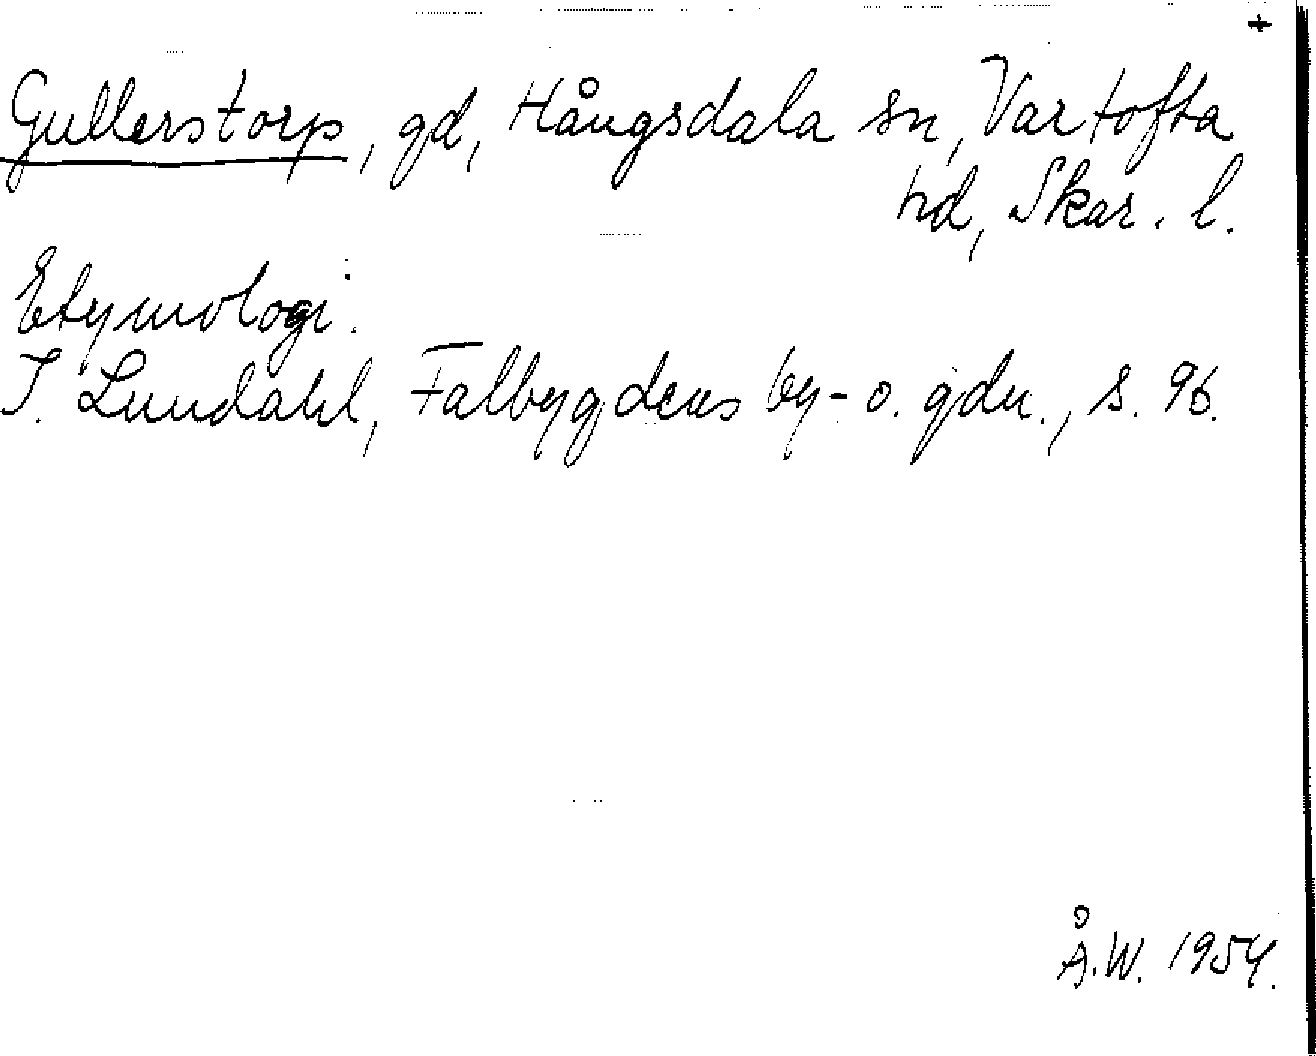 +
Gullerstorp, gd, Hångsdala sn, Vartofta
hd, Skar. l.
Etymologi.
I. Lundahl, Falbygdens by- o. gdn., s. 96.
Å.W. 1954.